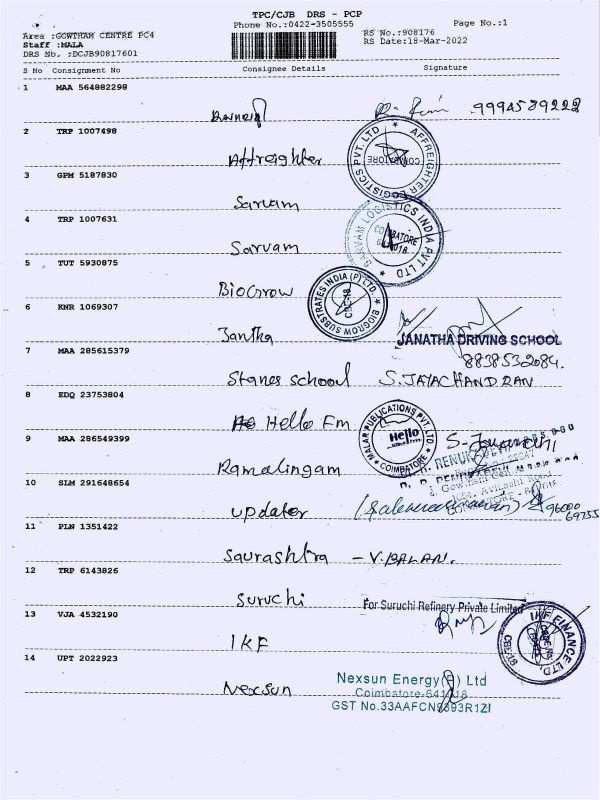 TPC/CJB DRS - PCP
Phone No.:0422-3505555
Page No.:1
Area :GOWTHAM CENTRE PC4
Staff :MALA
DRS No. :DCJB90817601
RS No.:908176
RS Date:18-Mar-2022
S No Consignment No Consignee Details Signature
1 MAA 564882298
9994589222
2 TRP 1007498
Affreighter
AFFREIGHTER LOGISTICS PVT. LTD
COIMBATORE
3 GPM 5187830
Sarvam
4 TRP 1007631
Sarvam
SARVAM LOGISTICS INDIA PVT LTD
COIMBATORE
5 TUT 5930875
BioGrow
BIOGROW SUBSTRATES INDIA (P) LTD.
6 KNR 1069307
Jantha
JANATHA DRIVING SCHOOL
8838532084.
7 MAA 285615379
Stanes school S.JAYACHANDRAN
8 EDQ 23753804
Hello Fm
MALAR PUBLICATIONS PVT. LTD.
Hello
COIMBATORE
9 MAA 286549399
Ramalingam
10 SLM 291648654
updater
96000
69755
11 PLN 1351422
Saurashtra - V.BALAN.
12 TRP 6143826
Suruchi
For Suruchi Refinery Private Limited
13 VJA 4532190
IKF
IKF FINANCE LTD.
14 UPT 2022923
Nexsun
Nexsun Energy(P) Ltd
Coimbatore-641018
GST No.33AAFCN9393R1ZI